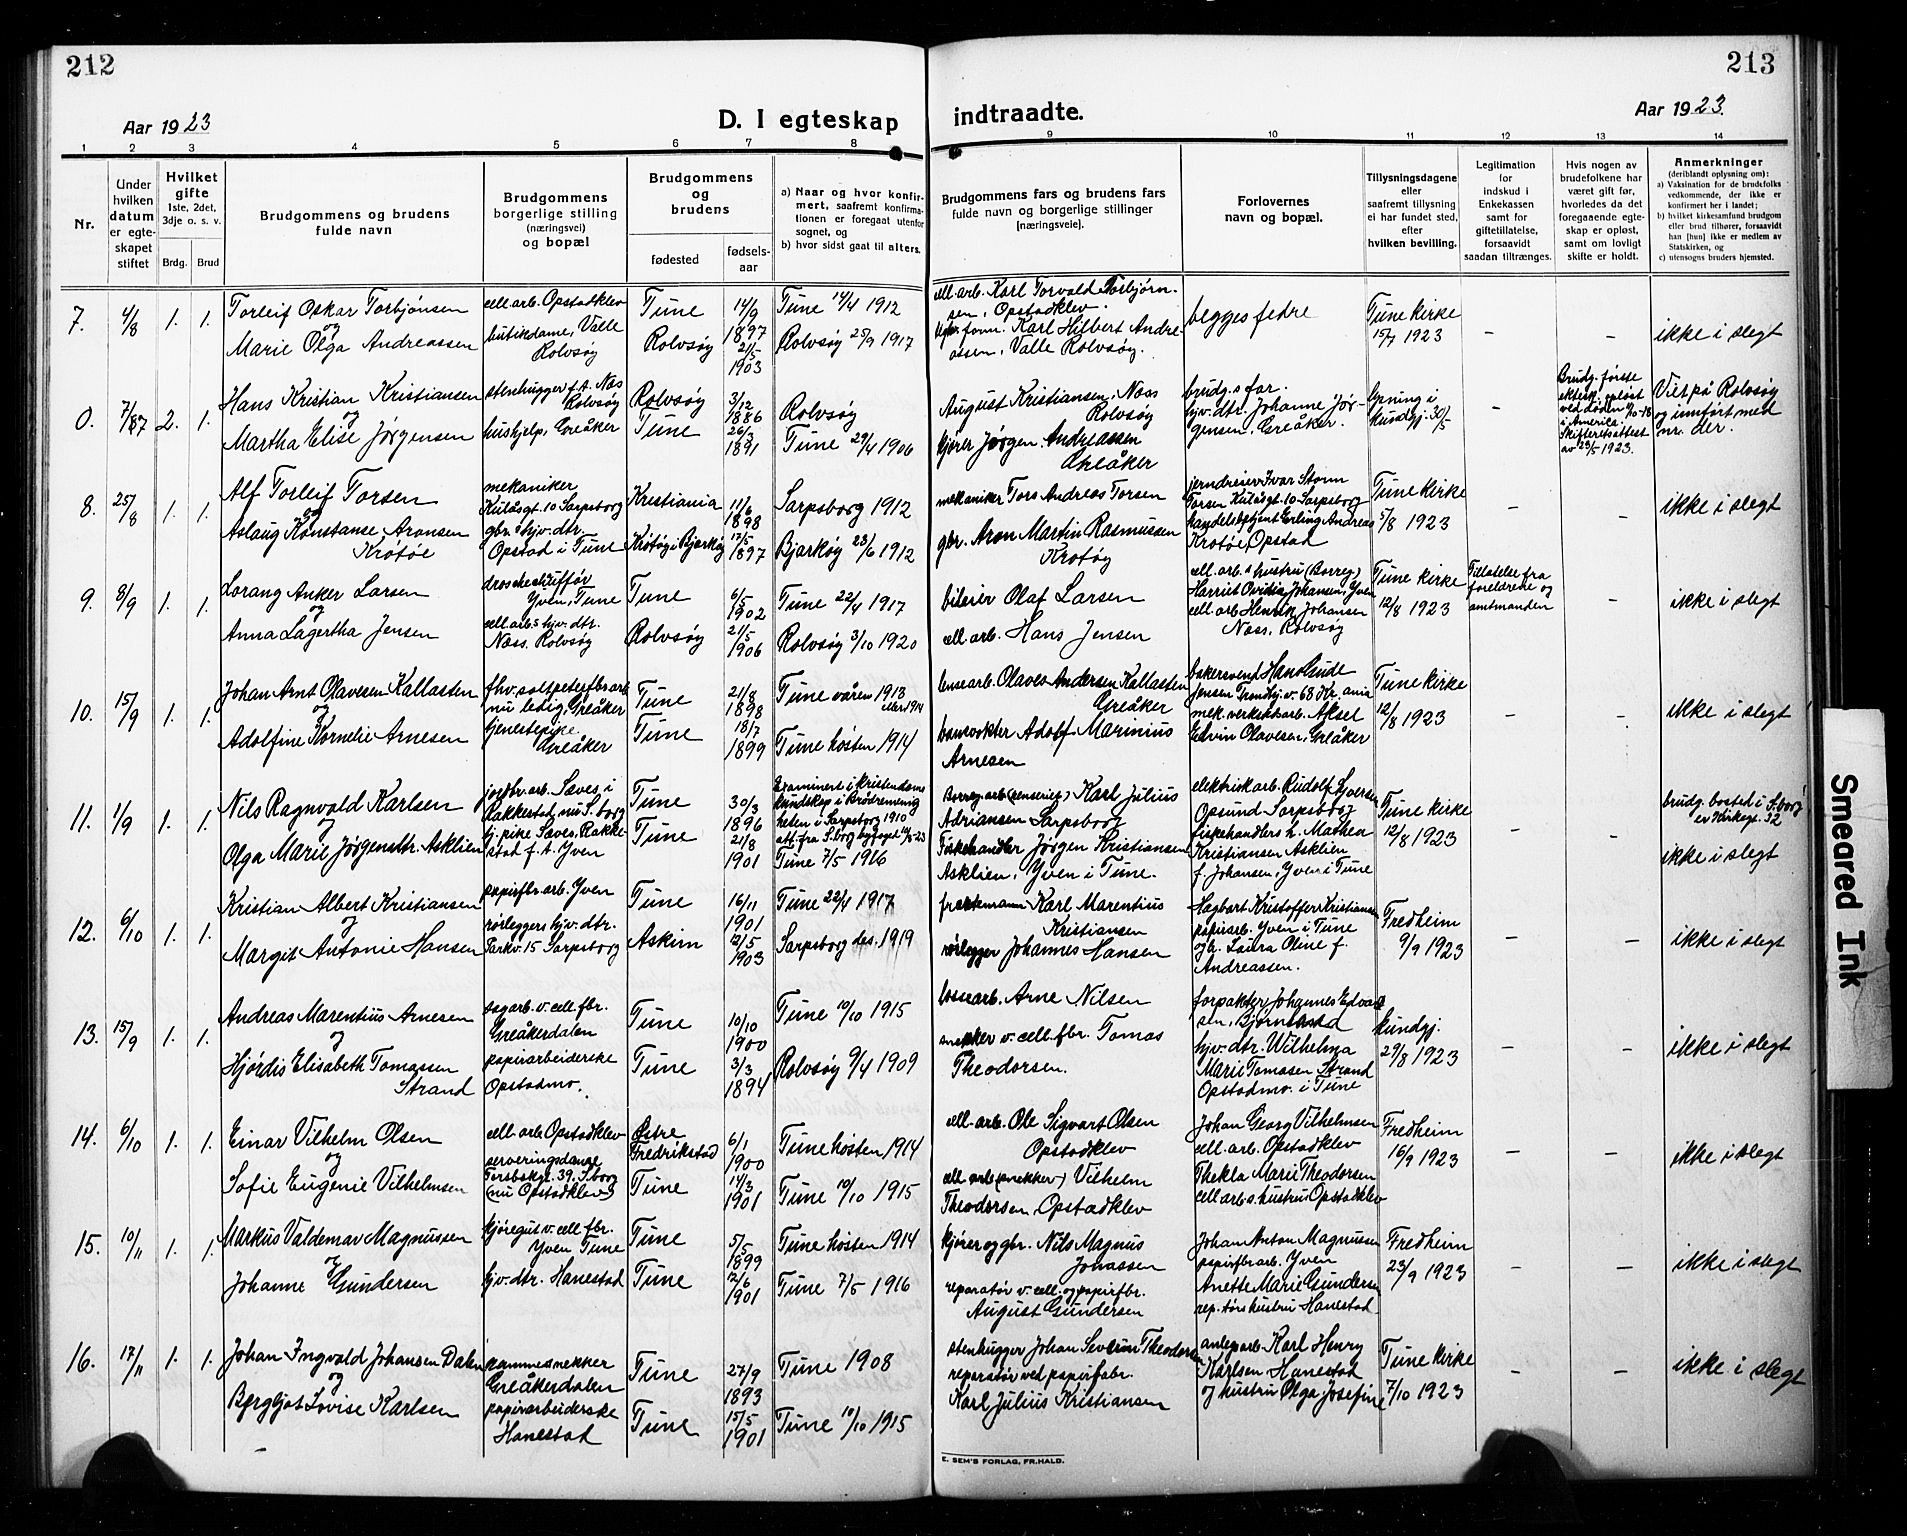 212
213
Aar 1923
D. I egteskap indtraadte.
Aar 1923.
1 2 3 4 5 6 7 8 9 10 11 12 13 14
Nr.
Under hvilken datum er egte-skapet stiftet
Hvilket gifte 1ste, 2det, 3dje o. s. v.
Brdg. Brud
Brudgommens og brudens fulde navn
Brudgommens borgerlige stilling (næringsvei) og bopæl
Brudgommens og brudens
fødested
fødsels-aar
a) Naar og hvor konfir-mert, saafremt konfirma-tionen er foregaat utenfor sognet, og
b) hvor sidst gaat til alters.
Brudgommens fars og brudens fars fulde navn og borgerlige stillinger [næringsveie].
Forlovernes navn og bopæl.
Tillysningsdagene eller saafremt tillysning ei har fundet sted, efter hvilken bevilling.
Legitimation for indskud i Enkekassen samt for giftetillatelse, forsaavidt saadan tiltrænges.
Hvis nogen av brudefolkene har været gift før, hvorledes da det foregaaende egte-skap er opløst, samt om lovligt skifte er holdt.
Anmerkninger (deriblandt oplysning om):
a) Vaksination for de brudefolks vedkommende, der ikke er konfirmert her i landet;
b) hvilket kirkesamfund brudgom eller brud tilhører, forsaavidt han [hun] ikke er medlem av Statskirken, og
c) utensogns bruders hjemsted.
7. 4/8 1. 1.
Torleif Oskar Torbjönsen
og
Marie Olga Andreassen
cell.arb. Opstadklev
butikdame, Valle
Rolvsöy
Tune
Rolvsöy
14/9
1897
21/5
1903
Tune 14/4 1912
Rolvsöy 25/9 1917
cell. arb. Karl Torvald Torbjörn-
sen, Opstadklev
form. Karl Hilbert Andre-
assen, Valle Rolvsöy.
begges fedre
Tune kirke
15/7 1923
–
–
ikke i slegt
0. 7/87 2. 1.
Hans Kristian Kristiansen
og
Martha Elise Jørgensen
stenhugger f.t. Næs
Rolvsöy
hushjelp, Greåker
Rolvsöy
Tune
3/12
1886
26/3
1891
Rolvsöy
Tune 29/4 1906
August Kristiansen, Næss
Rolvsöy
kjører Jørgen Andreassen
Greåker
brudg.s far.
hjv. dtr. Johanne Jør-
gensen, Greåker.
Lysning i
kundgj. 30/5
–
Brudg. første
ektesk. opløst
ved døden
i Amerika.
Skifteretsattest
av 23/5 1923.
Viet på Rolvsöy
og innført med
nr. der.
8. 25/8 1. 1.
Alf Torleif Torsen
og
Aslaug Konstanse Aronsen
Krötöe
mekaniker
Kulåsgt. 10 Sarpsborg
gbr.s hjv. dtr.
Opstad i Tune
Kristiania
Krötöy i Bjarköy
11/6
1898
17/5
1897
Sarpsborg 1912
Bjarköy 23/6 1912
mekaniker Tors Andreas Torsen
gbr. Aron Martin Rasmussen
Krotöy
jerndreier Ivar Storm
Torsen Kulåsgt. 10 Sarpsborg
handelsbetjent Erling Andreas
Krotöe, Opstad
Tune kirke
5/8 1923
–
–
ikke i slegt
9. 8/9 1. 1.
Lorang Anker Larsen
og
Anna Lagertha Jensen
droschechufför
Yven, Tune
cell. arb.s hjv. dtr.
Næss. Rolvsöy
Tune
Rolvsöy
6/5
1902
21/5
1906
Tune 22/4 1917
Rolvsöy 3/10 1920
bileier Olaf Larsen
cell. arb. Hans Jensen
cell. arb.s hustru (Borreg)
Harriet Ovidia Johansen, Yven
cell. arb. Henrik Johansen
Næss, Rolvsöy
Tune kirke
12/8 1923
Tillatelse fra
foreldrene og
amtmanden
–
ikke i slegt
10. 15/9 1. 1.
Johan Arnt Olavesen Kallasten
og
Adolfine Kornelie Arnesen
fhv. saltpeterfbr.arb.
nu ledig, Greåker
tjenestepike
Greåker
Tune
Tune
21/8
1898
18/7
1899
Tune våren 1913
eller 1914
Tune hösten 1914
lensearb. Olaves Andersen Kallasten
Greåker
banevokter Adolf Marinius
Arnesen
bakersvend Hans Gude
Jensen
mek. verkstedarb. Aksel
Edvin Olavesen, Greåker
Tune kirke
12/8 1923
–
–
ikke i slegt
11. 1/9 1. 1.
Nils Ragnvald Karlsen
og
Olga Marie Jörgensdtr. Asklien
jordbr.arb. Sæves, i
Rakkestad, nu S.borg
tj. pike Sæves, Rakke-
stad f. t. Yven
Tune
Tune
30/3
1896
21/8
1901
Examinert i kristendoms
kundskap i Brödremenig
heten i Sarpsborg 1910
Tune 7/5 1916
Karl Julius
Adriansen Sarpsborg
Fiskehandler Jörgen Kristiansen
Asklien, Yven i Tune.
elektrik.arb. Rudolf
Opsund Sarpsborg
fiskehandlers h. Mathea
Kristiansen Asklien
f. Johansen, Yven i Tune
Tune kirke
12/8 1923
–
–
brudg. bosted i S.borg
er Kirkegt. 32
ikke i slegt
12. 6/10 1. 1.
Kristian Albert Kristiansen
og
Margit Antonie Hansen
papirfbr.arb. Yven
rörleggers hjv. dtr.
Parkv. 15 Sarpsborg
Tune
Askim
16/11
1901
12/5
1903
Tune 22/4 1917
Sarpsborg des. 1919
Karl Marentius
Kristiansen
rörlegger Johannes Hansen
Hagbart Kristoffer Kristiansen
papirarb. Yven i Tune
Laura Oline f.
Andreassen.
Fredheim
9/9 1923
–
–
ikke i slegt
13. 15/9 1. 1.
Andreas Marentius Arnesen
og
Hjördis Elisabeth Tomassen
Strand
sagarb. v. cell. fbr.
Greåkerdalen
papirarbeiderske
Opstadmo.
Tune
Tune
10/10
1900
3/3
1894
Tune 10/10 1915
Rolvsöy 9/4 1909
lossearb. Arne Nilsen
snekker v. cell. fbr. Tomas
Theodorsen.
forpakter Johannes Edvard
sen, Björnstad
hjv. dtr. Wilhelma
Marie Tomasen Strand
Opstadmo. i Tune
kundgj.
29/8 1923
–
–
ikke i slegt
14. 6/10 1. 1.
Einar Vilhelm Olsen
og
Sofie Eugenie Vilhelmsen
cell. arb. Opstadklev
serveringsdame
Torsbekgt. 39. S.borg
(nu Opstadklev)
Østre
Fredrikstad
Tune
6/1
1900
14/3
1901
Tune hösten 1914
Tune 10/10 1915
cell. arb. Ole Sigvart Olsen
Opstadklev
cell. arb. (snekker) Vilhelm
Theodorsen, Opstadklev
Johan Georg Vilhelmsen
cell. arb. Opstadklev
Thekla Marie Theodorsen
cell. arb.s. hustru Opstadklev
Fredheim
16/9 1923
–
–
ikke i slegt
15. 10/11 1. 1.
Markus Valdemar Magnussen
og
Johanne Gundersen
kjöregut v. cell. fbr.
Yven Tune
hjv. dtr. Hanestad
Tune
Tune
5/5
1899
12/6
1901
Tune hösten 1914
Tune 7/5 1916
kjører og gbr. Nils Magnus
Johassen
reparatör v. cell. og papirfbr.
August Gundersen
Johan Anton Magnussen
papirfbr.arb. Yven
Anette Marie Gundersen
rep.törs hustru Hanestad
Fredheim
23/9 1923
–
–
ikke i slegt
16. 17/11 1. 1.
Johan Ingvald Johansen Dalen
og
Bergljot Lovise Karlsen
rammesnekker
Greåkerdalen
papirarbeiderske
Hanestad
Tune
Tune
27/9
1893
15/5
1901
Tune 1908
Tune 10/10 1915
stenhugger Johan Severin Theodorsen
reparatør ved papirfabr.
Karl Julius Kristiansen
anlegsarb. Karl Henry
Karlsen Hanestad
og hustru Olga Josefine
Tune kirke
7/10 1923
–
–
ikke i slegt
E. SEM'S FORLAG, FR.HALD.
Smeared Ink